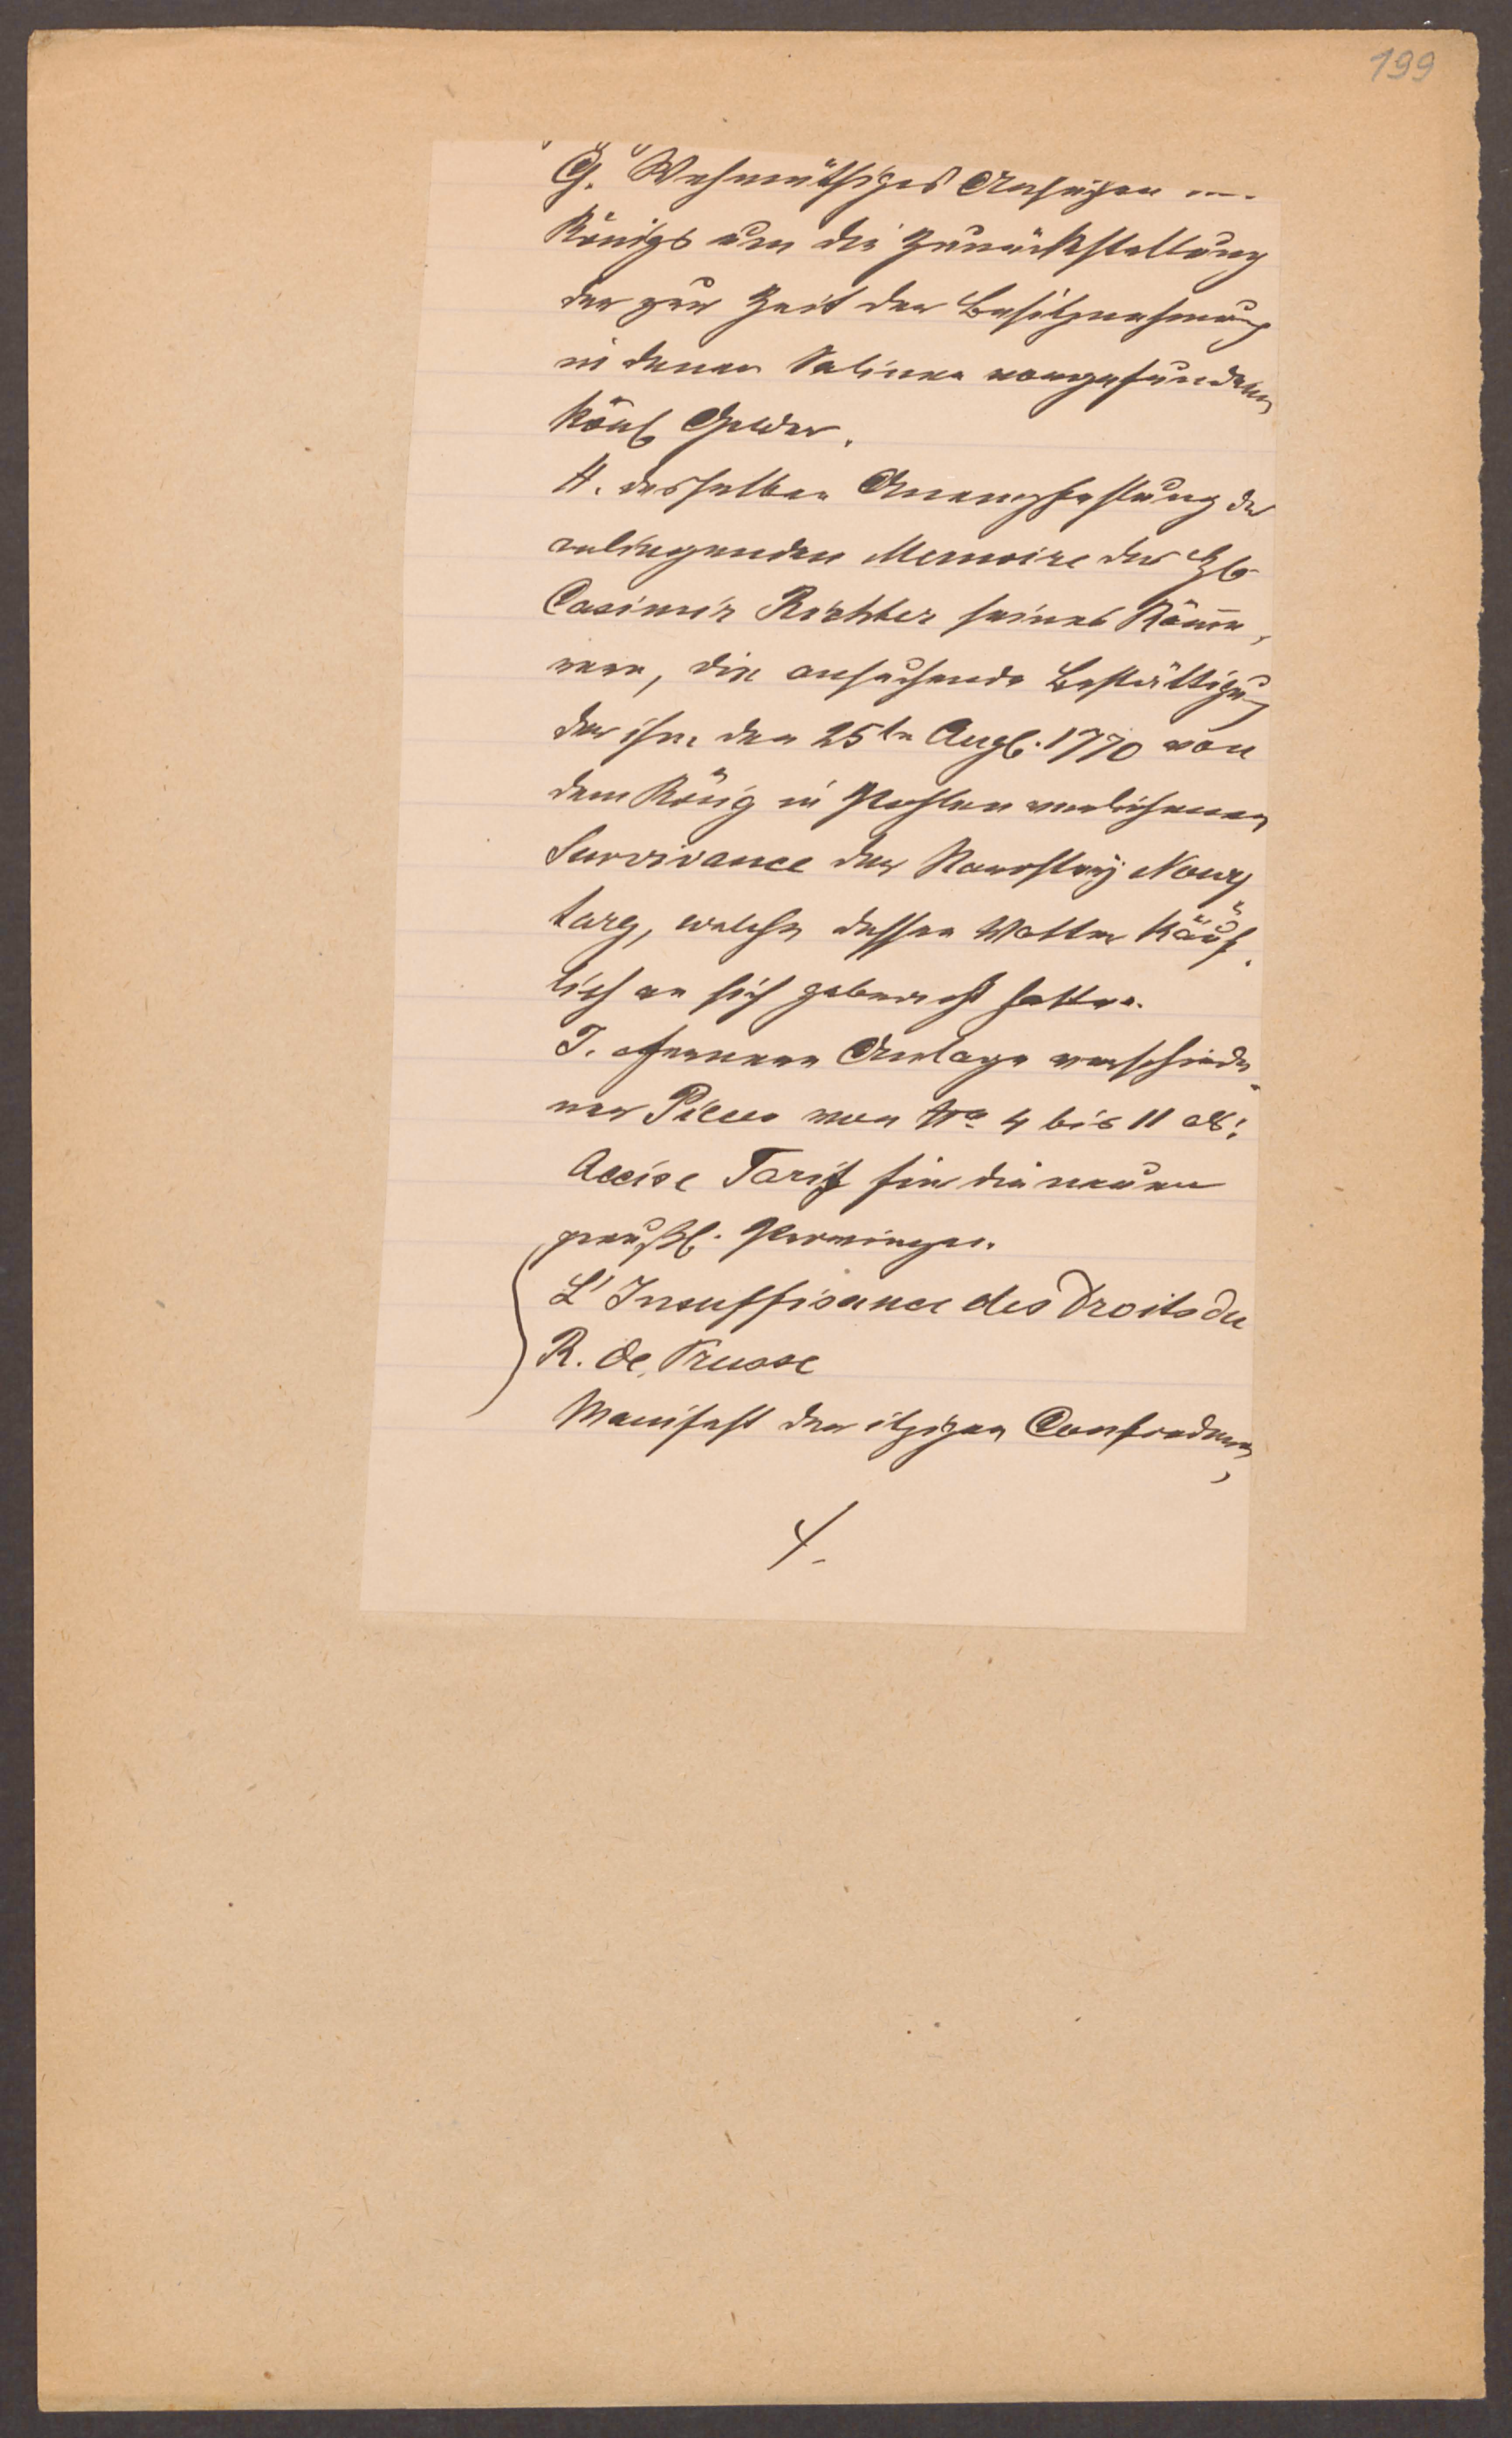 199
G. Wehmüthiges Ansuchen
Königs um die Zurückstellung
der zur Zeit der Besitznehmung
in denen Salinen vorgefundenen
Königl Gelder.
H. desselben Anempfehlung der
anliegenden Memoire des
Casimir Richter seines Kämme,
rern, die ansuchende Bestättigung
der ihm den 25ten Augl. 1770 von
dem König in Pohlen verliehenen
Survivance der Starostey Nowy
targ, welche dessen Vatter käuf-
lich an sich gebracht hatte.
J. Fernere Anlage verschiede-
ner Pieces von No 4 bis 11 als:
Accise Tarif für die neuen
preußl. Provinzen.
L'Insuffisance des Droits du
R. de Prusse
Manifest der itzigen Confoederen,
4.